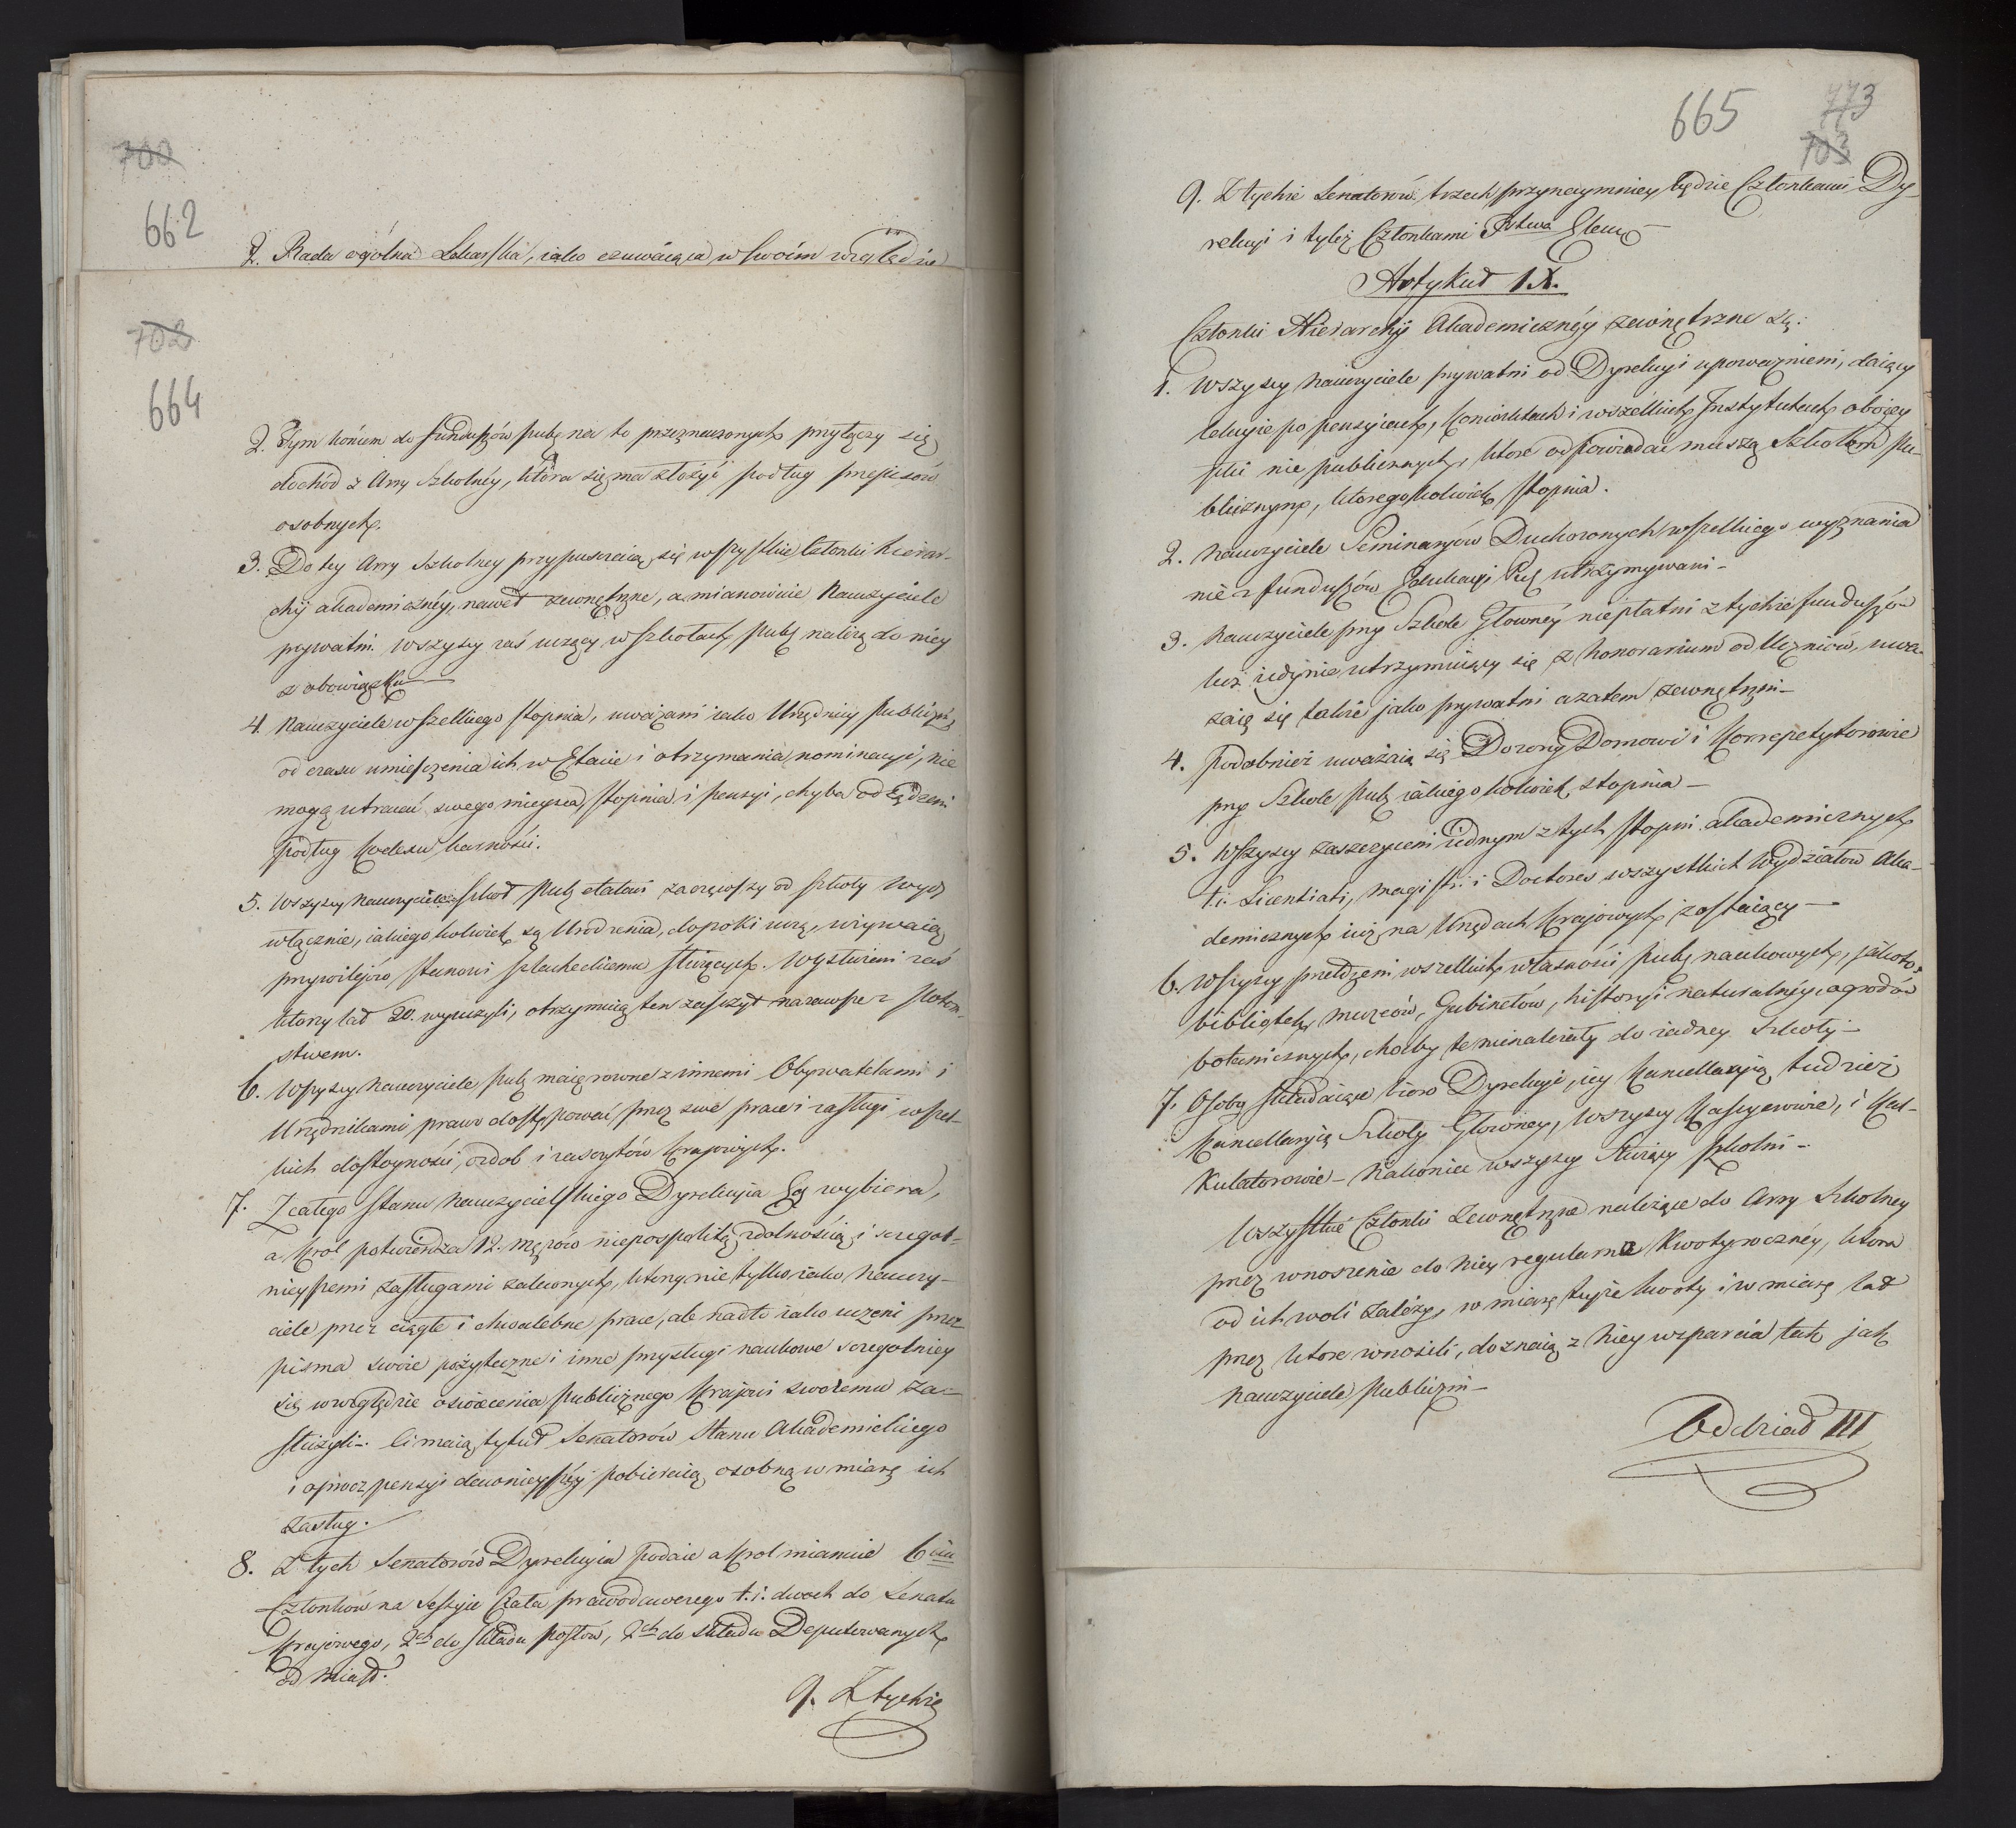 700
662
2. Rada ogólna Lekarska, iako czuwaiąca w swoim względzie
702
664
2. Tym końcem do funduszów pub. na to przeznaczonych przyłączy się
dochód z Arry Szkolnéy, która się ma złożyć podług przepisów
osobnych.
3. Do tey Arry Szkolney przypuszczaią się wszystkie Członki hierar-
chij akademicznéy, nawet zewnętrzne, a mianowicie Nauczyciele
prywatni. wszyscy zaś uczący w Szkołach pub. należą do niey
z obowiązku
4. Nauczyciele wszelkiego stopnia, uważani iako Urzędnicy Publiczni,
od czasu umieszczenia ich w Etacie i otrzymania nominacyi, nie
mogą utracać swego mieysca, stopnia i pensyi, chyba odsądzeni
podług Kodexu karności.
5. Wszyscy Nauczyciele Szkół pub. etatowi zacząwszy od szkoły Wydz
włącznie, iakiegokolwiek są Urodzenia, dopóki uczą, używaią
przywilejów stanowi szlacheckiemu służących. Wysłużeni zaś
którzy lat 20. wyuczyli, otrzymuią ten zaszczyt na zawsze z potom-
stwem.
6. Wszyscy Nauczyciele pub. maią rowne z innemi Obywatelami i
Urzędnikami prawo dostępować przez swe prace i zasługi wszel-
kich dostoyności, ozdob i zaszczytów Krajowych.
7. Z całego stanu Nauczycielskiego Dyrekcyia Eg wybiera,
a Krol potwierdza 12. mężów niepospolitą zdolnością i szczegol-
nieyszemi zasługami zaleconych, którzy nie tylko iako Nauczy-
ciele przez ciągłe i chwalebne prace, ale nadto iako uczeni przez
pisma swoie pożyteczne i inne przysługi naukowe szczegolniey
się względzie oświecenia publicznego Krajowi swoiemu za-
służyli. Ci maią tytuł Senatorów Stanu Akademickiego
i oprocz pensyi dawnieyszéy pobieraią osobną w miarę ich
zasług.
8. Z tych Senatorów Dyrekcyia podaie a Krol mianuie 6ciu
Członków na Sessyie Ciała prawodawczego t.i. dwoch do Senatu
Krajowego, 2ch do składu Posłów, 2ch do składu Deputowanych
od Miast.
9. Z tychże
665
773
703
9. Z tychże Senatorów trzech przynaymniey będzie Członkami Dy-
rekcyi i tyleż Członkami Rstwa Elem
Artykuł IX.
Członki Hierarchij Akademicznéy zewnętrzne są:
1. Wszyscy Nauczyciele prywatni od Dyrekcyi upoważnieni, daiący
lekcyie po pensyiach, Konwiktach i wszelkich Instytutach oboiey
płci nie publicznych, ktore odpowiadać muszą Szkołom pu-
blicznym, ktoregokolwiek stopnia.
2. Nauczyciele Seminaryów Duchownych wszelkiego wyznania
nie z funduszów Edukacyi Pub utrzymywani -
3. Nauczyciele przy Szkole Głowney niepłatni z tychże funduszów
lecz iedynie utrzymuiący się z honorarium od Uczniów, uwa-
żaią się także jako prywatni a zatem zewnętrzni -
4. Podobnież uważaią się Dozorcy Domowi i Korrepetytorowie
przy Szkole pub. iakiegokolwiek stopnia -
5. Wszyscy zaszczyceni iednym z tych stopni akademicznych
t.i. Licentiati, Magistri i Doctores wszystkich Wydziałów Aka-
demicznych iuż na Urzędach Krajowych zostaiący -
6. Wszyscy przełożeni wszelkich własności pub. naukowych, jakoto:
bibliotek, muzeów, Gabinetów, historyi naturalnéy, ogrodów
botanicznych, choćby te nienależały do żadney Szkoły -
7. Osoby składaiące biuro Dyrekcyi, iey Kancellaryią, tudzież
Kancellaryią Szkoły Głowney, wszyscy Kassyerowie, i Kal-
kulatorowie - Nakoniec wszyscy Służący szkolni -
Wszystkie Członki zewnętrzne należące do Arry Szkolney
przez wnoszenie do niey regularne kwoty roczney, ktora
od ich woli zależy, w miarę teyże kwoty i w miarę lat
przez ktore wnosili, doznaią z niey wsparcia tak jak
Nauczyciele publiczni -
Oddział III